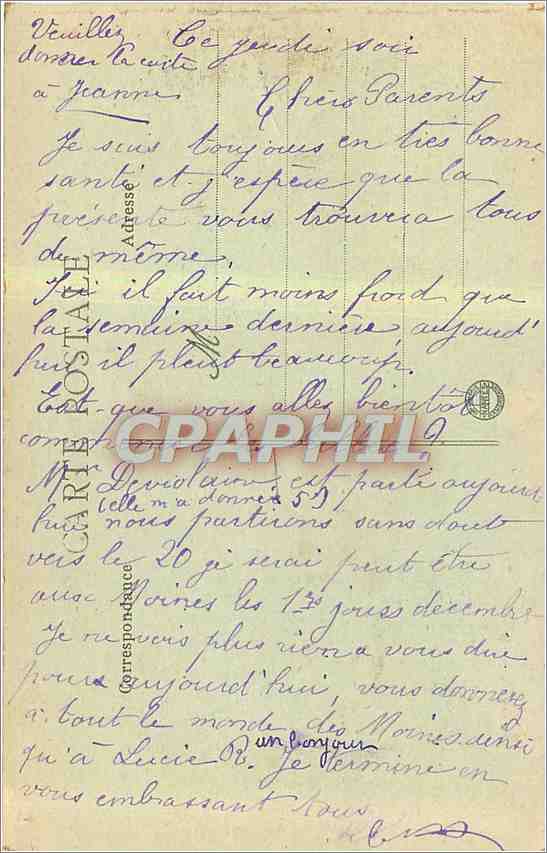 Veuillez
donner la carte
à Jeanne
Ce jeudi soir
Chers Parents
Je suis toujours en très bonne
santé et j'espère que la
présente vous trouvera tous
de même.
Ici il fait moins froid que
la semaine dernière aujourd'
hui il pleut beaucoup.
Est-que vous allez bientôt
?
Mme est parti aujourd
(elle m'a donnée 5f)
hui nous partirons sans dout
vers le 20 je serai peut être
aux Moines les 1ers jours décembre
Je ne vois plus rien a vous dire
pour aujourd'hui, vous donnerez
à tout le monde des Moines ainsi
qu'à Lucie R. un bonjour Je termine en
vous embrassant tous
CARTE POSTALE
Correspondance
Adresse
M
CPARAPHIL